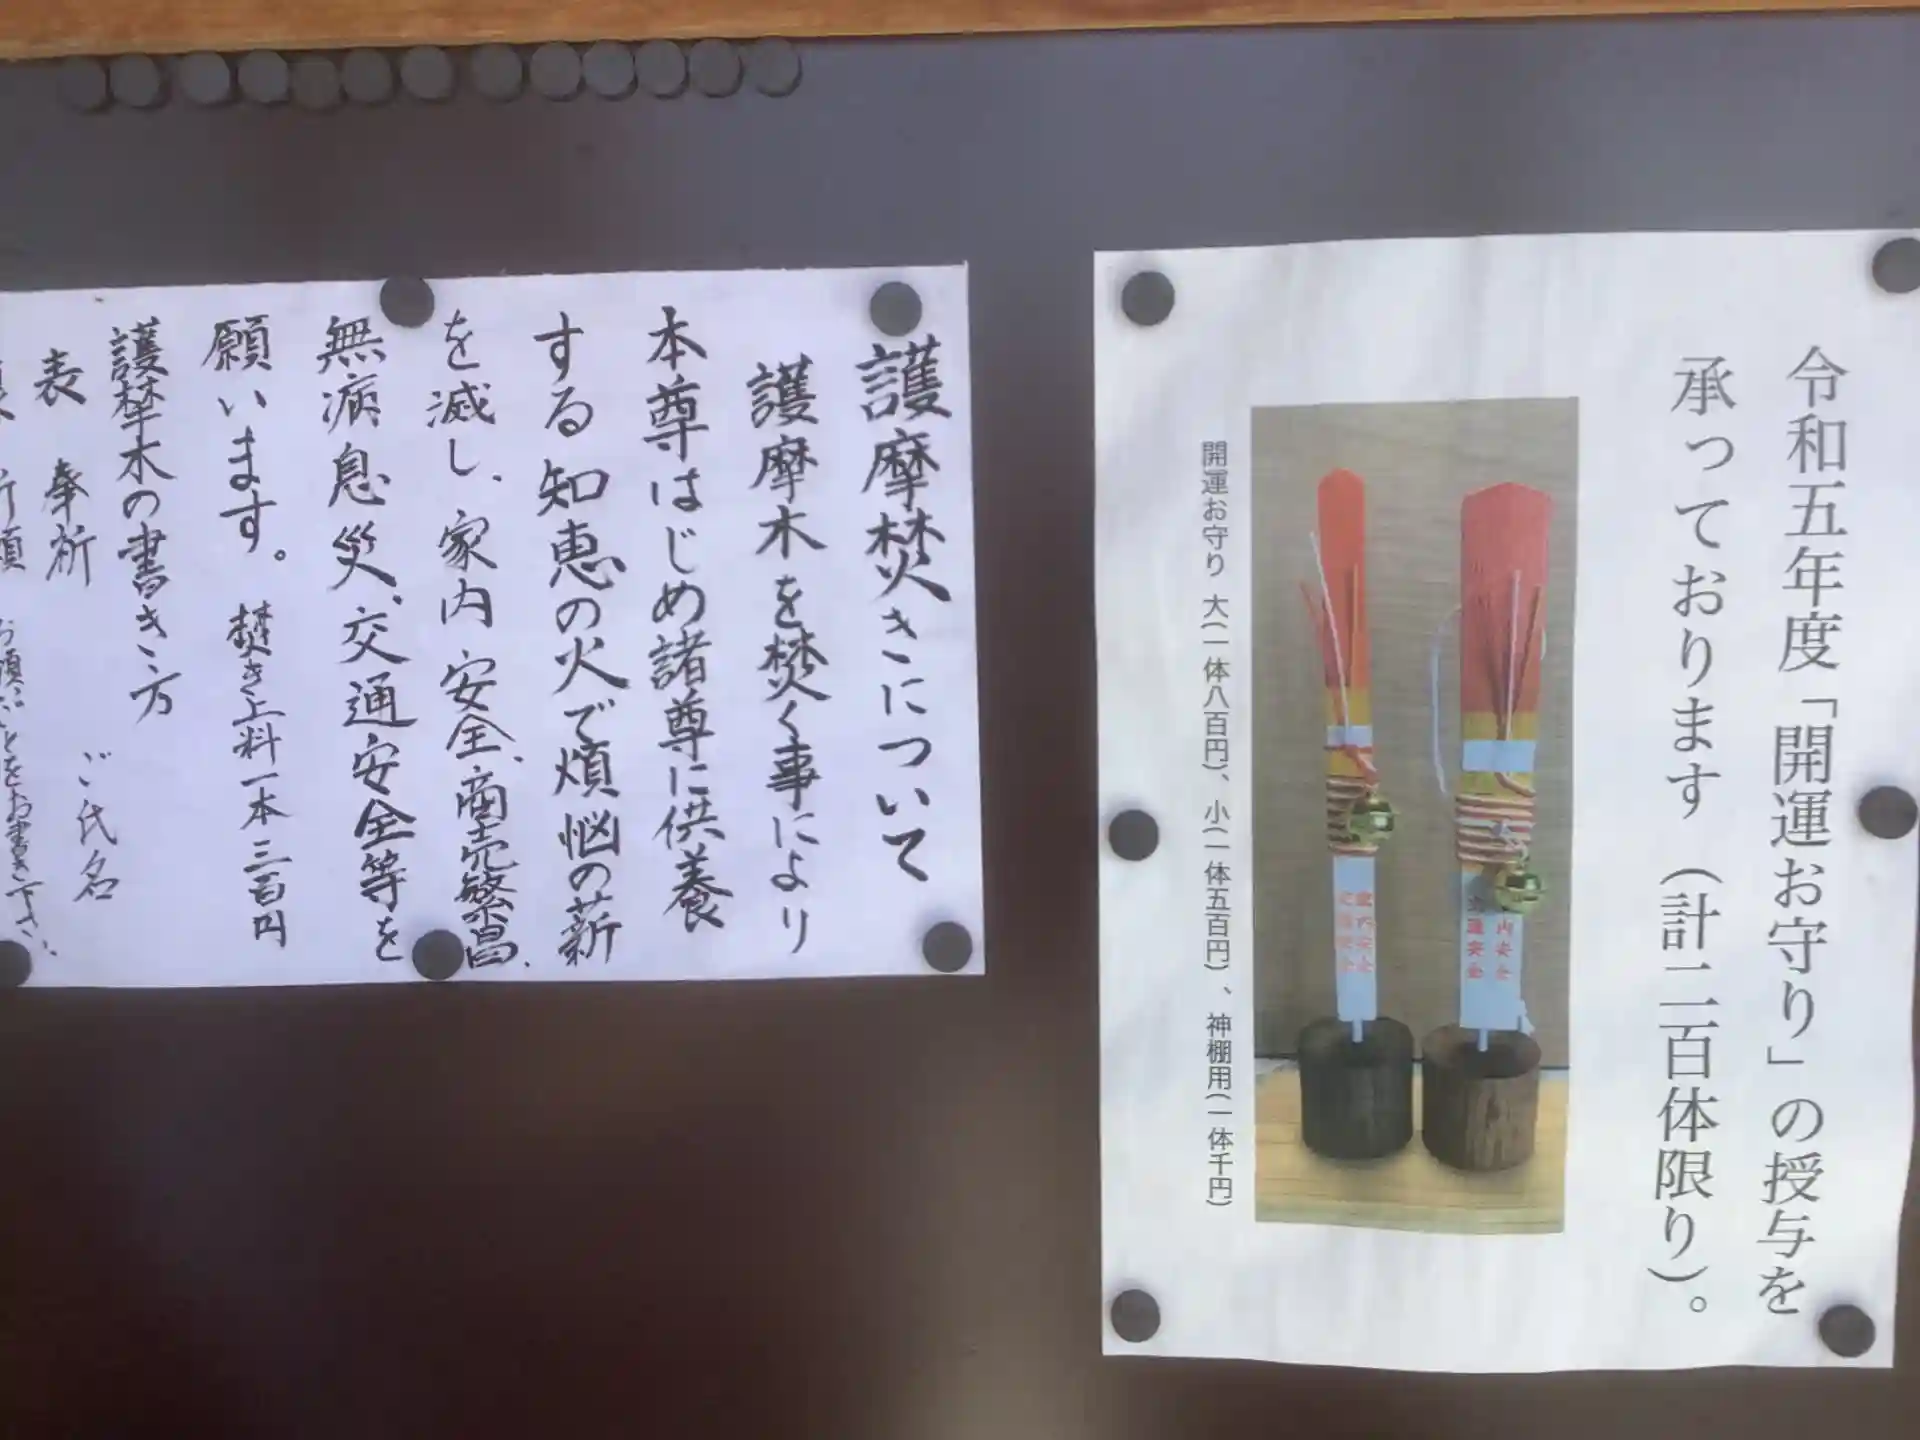 令和五年度「開運お守り」の授与を
承っております（計二百体限り）。
開運お守り 大(一体八百円)、小(一体五百円)、神棚用(一体千円)
護摩焚きについて
護摩木を焚く事により
本尊はじめ諸尊に供養
する知恵の火で煩悩の薪
を滅し、家内安全、商売繁昌、
無病息災、交通安全等を
願います。 焚き上料一本三百円
護摩木の書き方
表 奉祈 ご氏名
祈願 お願いごとをお書き下さい。